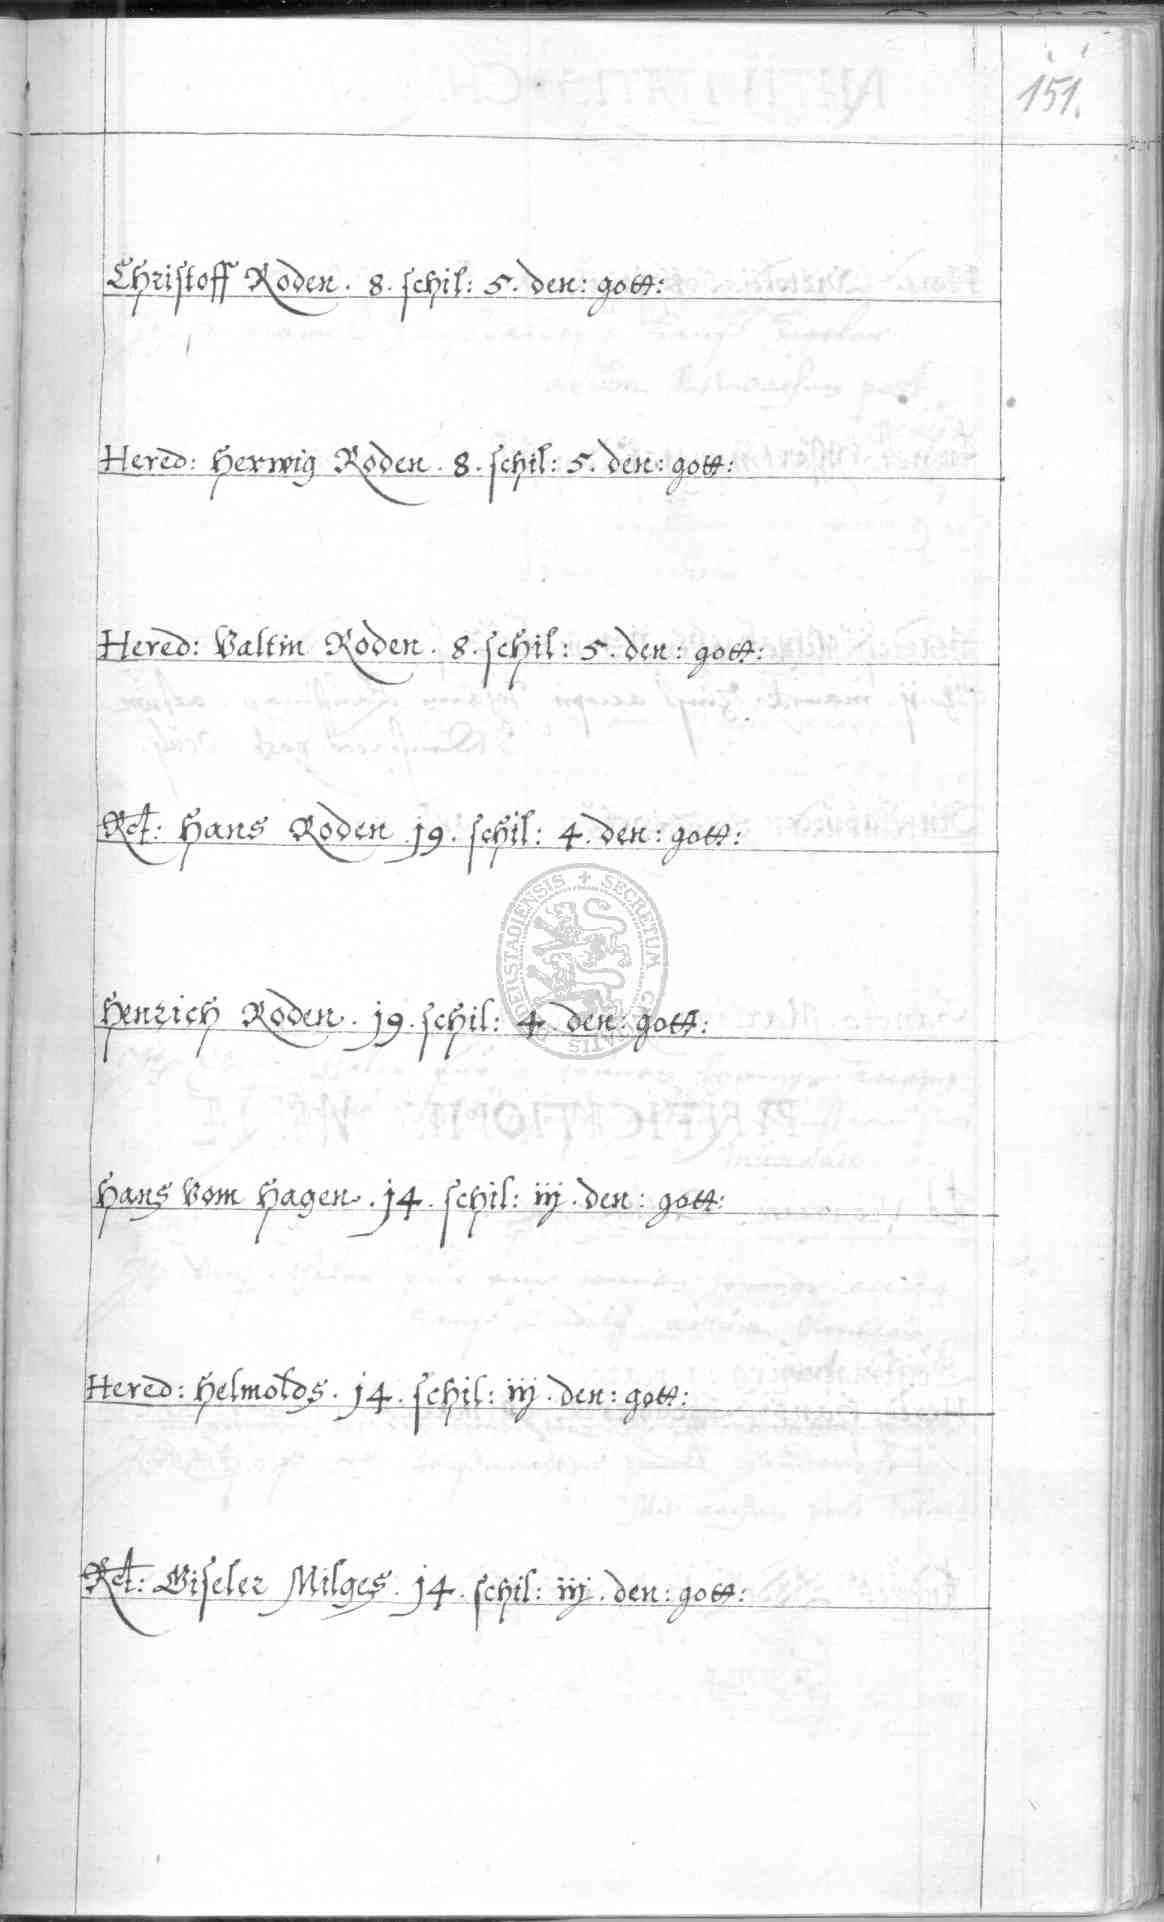 151.
Christoff Roden . 8 . schil : 5 . den : gott :
Hered : Herwig Roden . 8 . schil : 5 . den : gott :
Hered : Valtin Roden . 8 . schil : 5 . den : gott :
Rct : Hans Roden . j9 . schil : 4 . den : gott :
Henrich Roden . j9 . schil : 4 . den : gott :
Hans Vom Hagen . j4 . schil : iij . den : gott :
Hered : Helmolds . j4 . schil : iij . den : gott :
Rct : Giseler Milges . j4 . schil : iij . den : gott :
SECRETUM